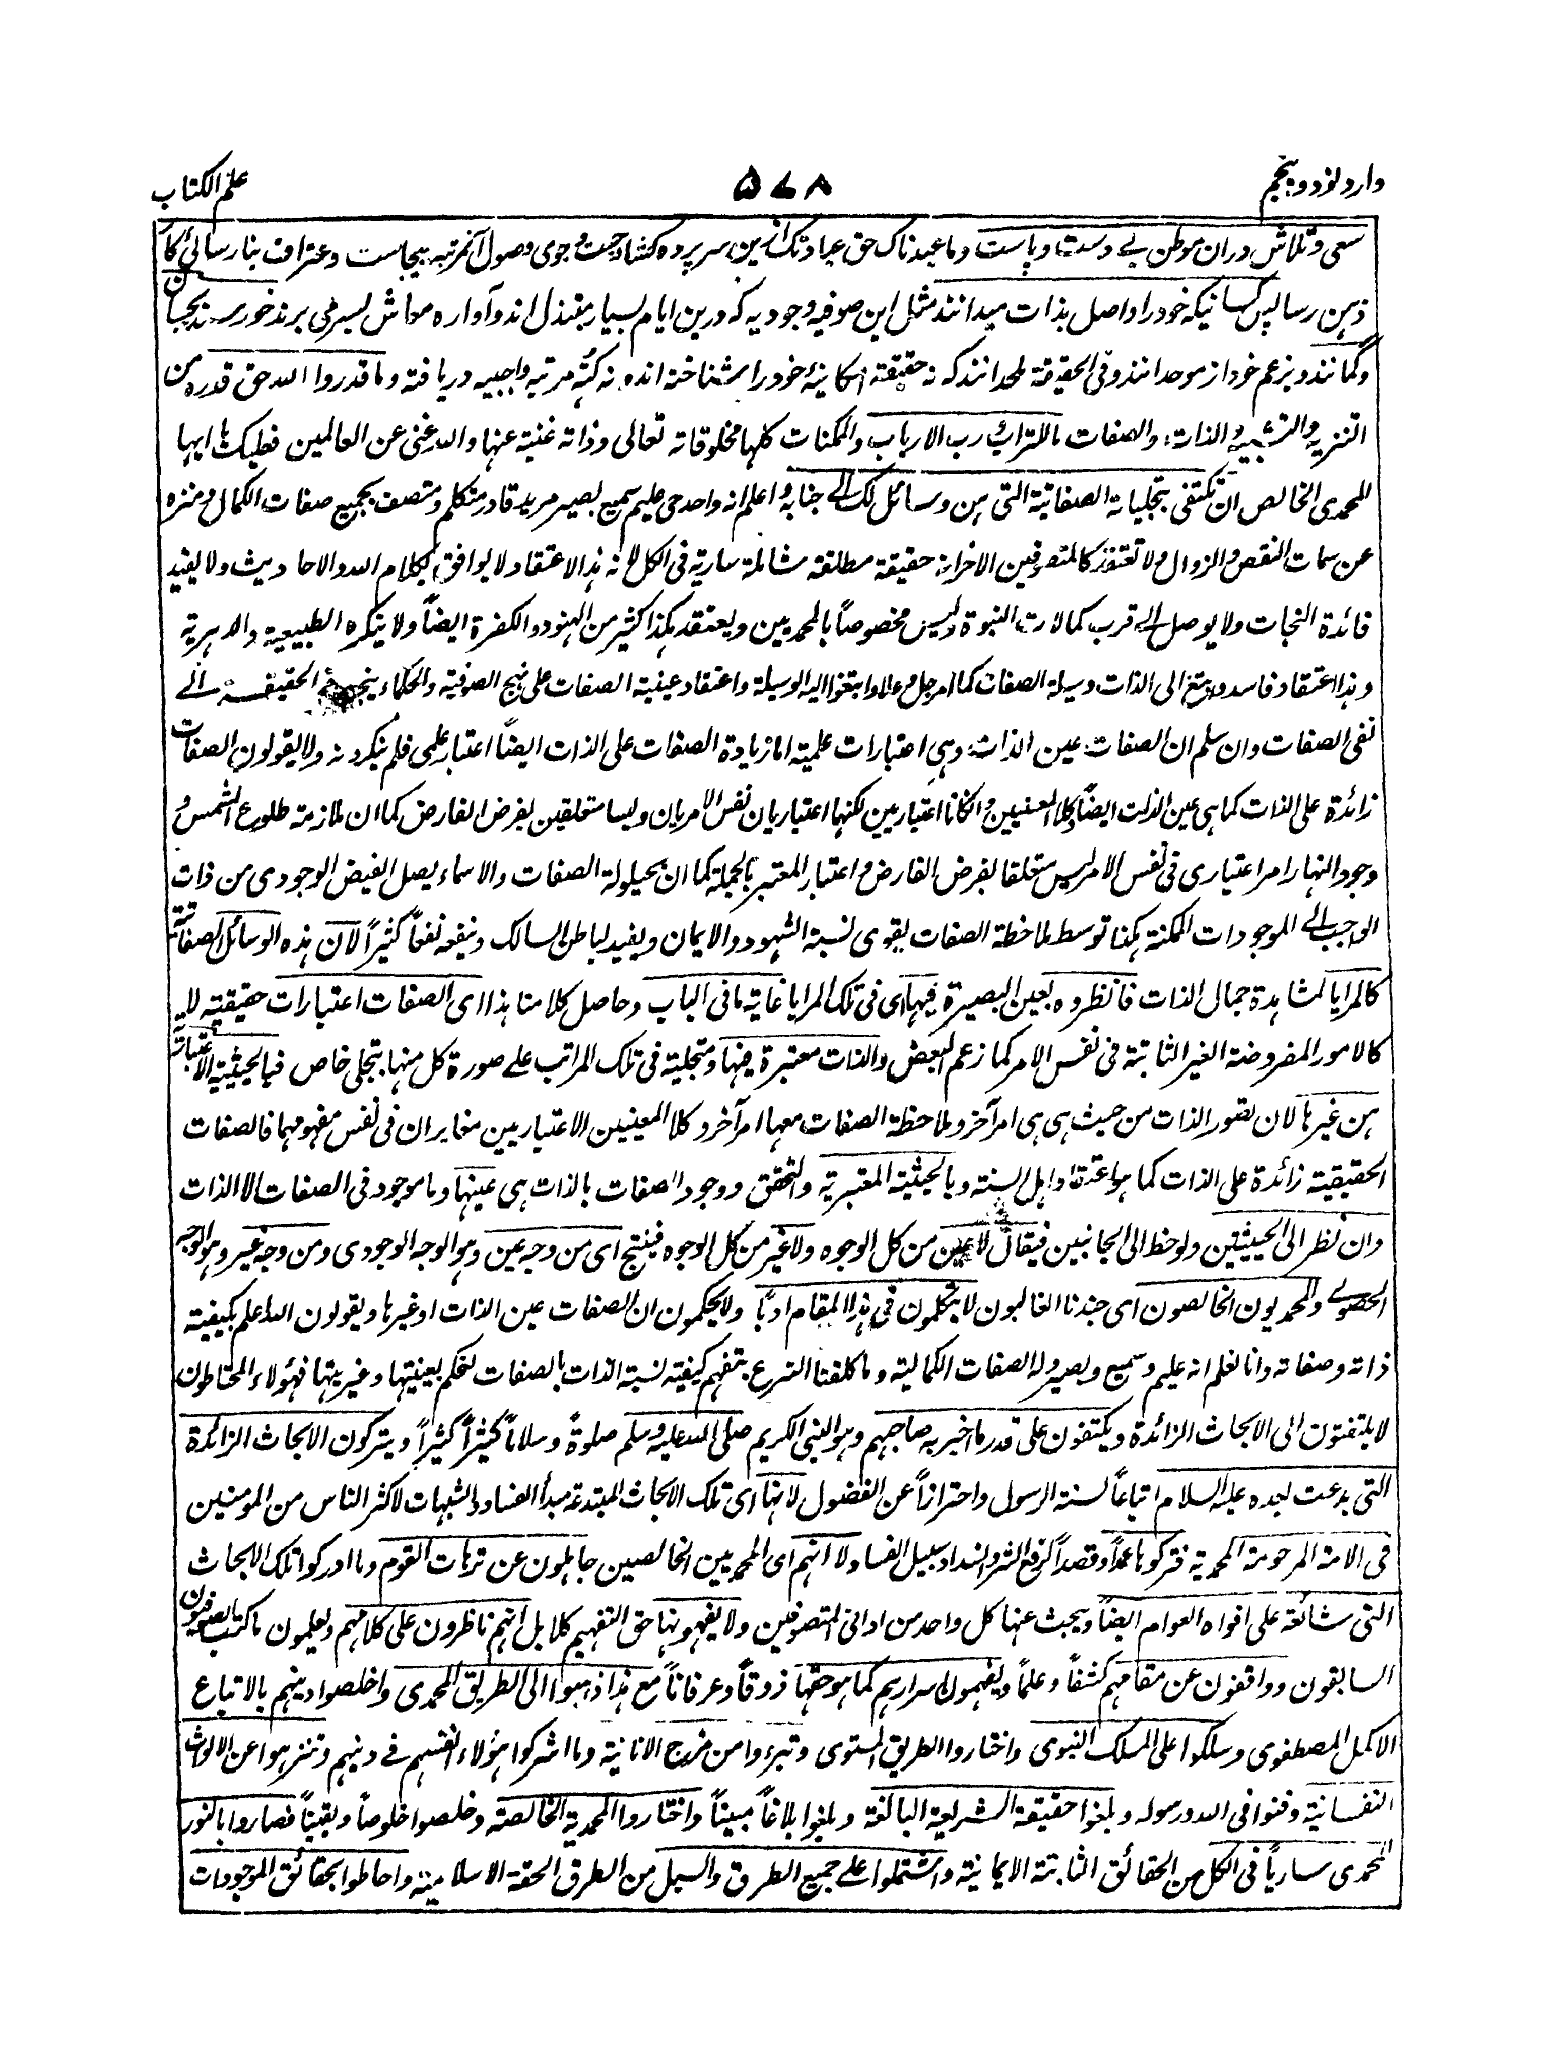 وارد نود و پنجم
۵۷۸
علم الکتاب
سعی و تلاش دران موطن بے دست و پاست و ما عبدناک حق عبادتک ازین سر پرده کشا و جست و جوی وصول آنمرتبه بیجاست و عتراف بنا رسائی کا
ذهن رسا پس کسانیکه خود را واصل بذات میدانند مثل این صوفیه وجودیه که درین ایام بسیار مبتذل اند و آواره معاش بسر می برند خورسند بجهان
و گمانند و بزعم خود از موحدانند و فی الحقیقة ملحدانند که نه حقیقته امکانیهٔ خود را شناخته اند نه کنه مرتبه واجبیه دریافته و ما قدروا الله حق قدره من
التنزیه والتشبیه والذات والصفات ما للتراب و رب الارباب والممکنات کلها مخلوقاته تعالی و ذاته غنیة عنها والله غنی عن العالمین فعلیک یا ایها
المحمدی الخالص ان تکتفی بتجلیاته الصفاتیة التی هن وسائل لک الے جنابه و اعلم انه واحد حی علیم سمیع بصیر مرید قادر متکلم و متصف بجمیع صفات الکمال و منزه
عن سمات النقص والزوال ولا تعتقد کالمتصوفین الاخر انه حقیقة مطلقة شاملة ساریة فی الکل لانه هذا الاعتقاد لا یوافق بکلام الله والاحادیث ولا یفید
فائدة النجات ولا یوصل الے قرب کمالات النبوة و لیس مخصوصاً بالمحمدیین و یعتقد هکذا کثیر من الهنود والکفرة ایضاً ولا ینکره الطبیعیة والدهریة
و هذا اعتقاد فاسد وابتغ الی الذات وسیلة الصفات کما امر جل و علا وابتغوا الیه الوسیلة و اعتقاد عینیة الصفات علی نهج الصوفیة والحکماء ینجر فی الحقیقة الے
نفی الصفات وان سلم ان الصفات عین الذات و هی اعتبارات علمیة اما زیادة الصفات علی الذات ایضاً اعتبار علمی فلم ینکرونه ولا یقولون الصفات
زائدة علی الذات کما هی عین الذات ایضاً و کلا المعنیین و ان کانا اعتباریین لکنهما اعتباریان نفس الامریان و لیسا متعلقین بفرض الفارض کما ان ملازمة طلوع الشمس و
وجود النهار امر اعتباری فی نفس الامر لیس متعلقا بفرض الفارض و اعتبار المعتبر بالجملة کما ان بحیلولة الصفات والاسماء یصل الفیض الوجودی من ذات
الواجب الے الموجودات الممکنة هکذا توسط ملاحظة الصفات یقوی نسبة الشهود والایمان و یفید لباطن السالک و ینفعه نفعاً کثیراً لان هذه الوسائل الصفاتیة
کالمرایا لمشاهدة جمال الذات فانظروه بعین البصیرة فیها ای فی تلک المرایا غایة ما فی الباب و حاصل کلامنا هذا ای الصفات اعتبارات حقیقیة لا
کالامور المفروضة الغیر الثابتة فی نفس الامر کما زعم البعض والذات معتبرة فیها و متجلیة فی تلک المراتب علے صورة کل منها بتجلی خاص فبالحیثیة الاعتباریة
هن غیرها لان تصور الذات من حیث هی هی امر آخر و ملاحظة الصفات معها امر آخر و کلا المعنیین الاعتباریین مغایران فی نفس مفهومهما فالصفات
الحقیقیة زائدة علی الذات کما هو اعتقاد اهل السنة و بالحیثیة المعتبریة والتحقق و وجود الصفات بالذات هی عینها و ما موجود فی الصفات الا الذات
وان نظر الی الحیثیتین و لوحظ الی الجانبین فیقال لا عین من کل الوجوه ولا غیر من کل الوجوه فینتج ای من وجه عین و هو الوجه الوجودی و من وجه غیر و هو الوجه
الحصولے والمحمدیون الخالصون ای جندنا الغالبون لا یتکلمون فی هذا المقام ادباً ولا یحکمون ان الصفات عین الذات او غیرها و یقولون الله اعلم بکیفیة
ذاته و صفاته وانا نعلم انه علیم و سمیع و بصیر و له الصفات الکمالیة و ما کلفنا الشرع بتفهم کیفیة نسبة الذات بالصفات لنحکم بعینیتها و غیریتها فهؤلاء المحتاطون
لا یلتفتون الی الابحاث الزائدة و یکتفون علی قدر ما اخبر به صاحبهم و هو النبی الکریم صلی الله علیه و سلم صلوةً و سلاماً کثیراً کثیراً و یترکون الابحاث الزائدة
التی بدعت بعده علیه السلام اتباعاً لسنة الرسول و احترازاً عن الفضول لانها ای تلک الابحاث المبتدعة مبدأ الفساد والشبهات لاکثر الناس من المؤمنین
فی الامة المرحومة المحمدیة فترکوها عمداً و قصداً لرفع الشر وانسداد سبیل الفساد لا انهم ای المحمدیین الخالصین جاهلون عن ترهات القوم و ما ادرکوا تلک الابحاث
التی شائعة علی افواه العوام ایضاً و یبحث عنها کل واحد من ادانی المتصوفین ولا یفهمونها حق التفهیم کلا بل انهم ناظرون علی کلامهم و یعلمون ما کتب الصوفیون
السابقون و واقفون عن مقامهم کشفاً و علماً و یفهمون اسرارهم کما هو حقها ذوقاً و عرفاناً مع هذا ذهبوا الی الطریق المحمدی و اخلصوا دینهم بالاتباع
الاکمل المصطفوی و سلکوا علی المسلک النبوی و اختاروا الطریق المستوی و تبرءوا من مزج الانانیة و ما اشرکوا هؤلاء انفسهم فے دینهم و تنزهوا عن الالواث
النفسانیة و فنوا فی الله و رسوله و بلغوا حقیقة الشریعة البالغة و بلغوا بلاغاً مبیناً و اختاروا المحمدیة الخالصة و خلصوا خلوصاً و یقیناً فصاروا بالنور
المحمدی ساریاً فی الکل من الحقائق الثابتة الایمانیة واشتملوا علے جمیع الطرق والسبل من الطرق الحقة الاسلامیة و احاطوا بحقائق الموجودات